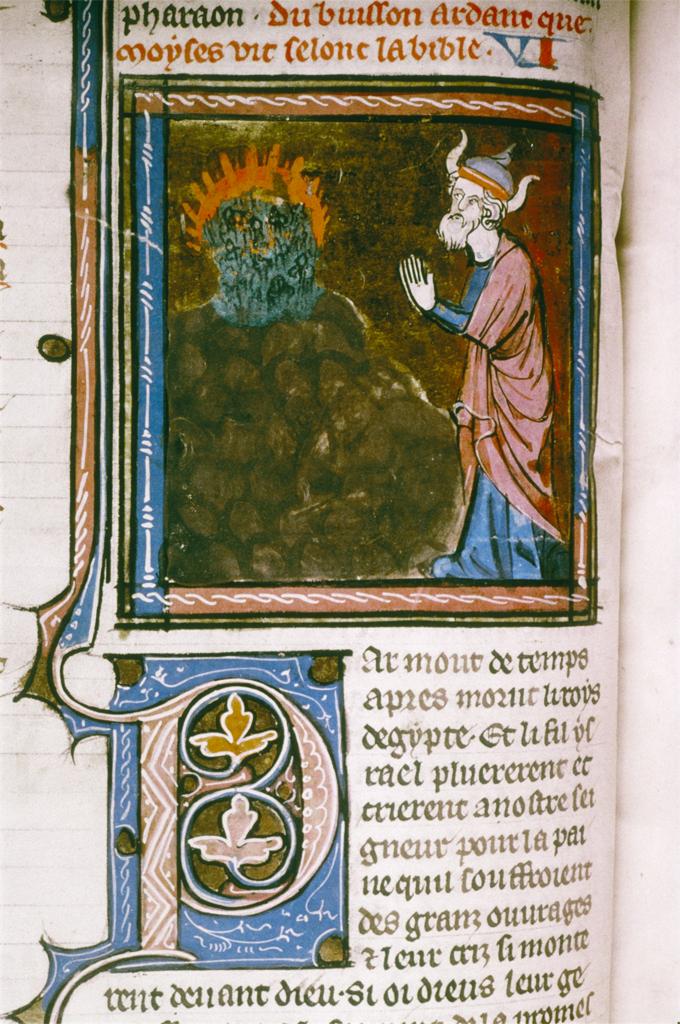 pharaon · Du buisson ardant que
moyses vit selonc la bible · VI
Par mout de temps
apres morut li roys
degypte · Et li fil ys
rael pluererent et
crierent a nostre sei
gneur pour la pai
ne quil souffroient
des granz ouurages
⁊ leur criz si monte
rent deuant dieu · si oi dieus leur ge